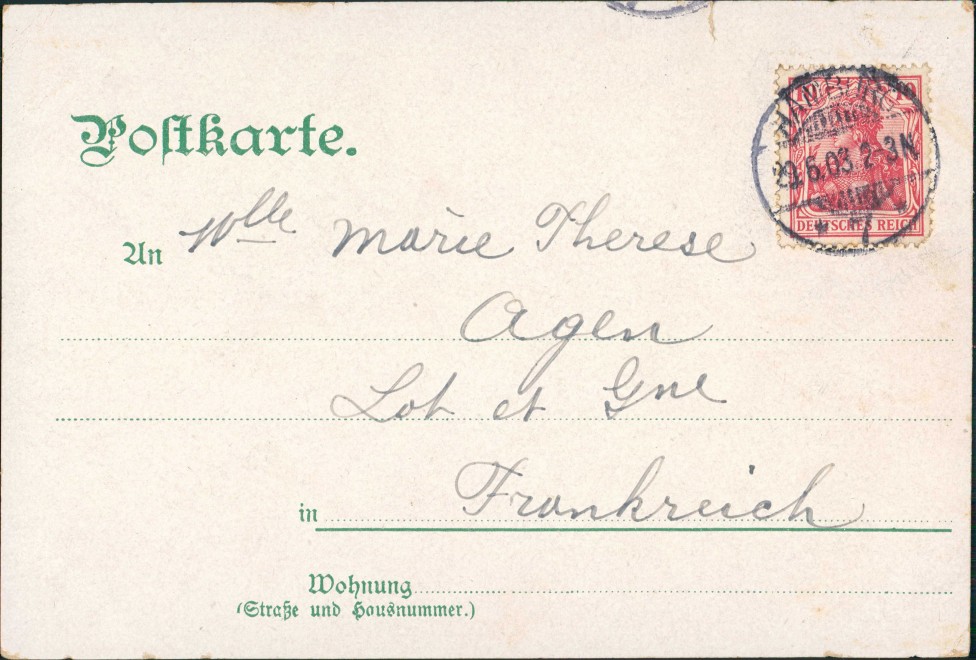 Postkarte.
HAMBURG
29.6.03.2-3N
* 7
10
DEUTSCHES REICH
An Mlle Marie Therese
Agen
Lot et Gne
in Frankreich
Wohnung
(Straße und Hausnummer.)